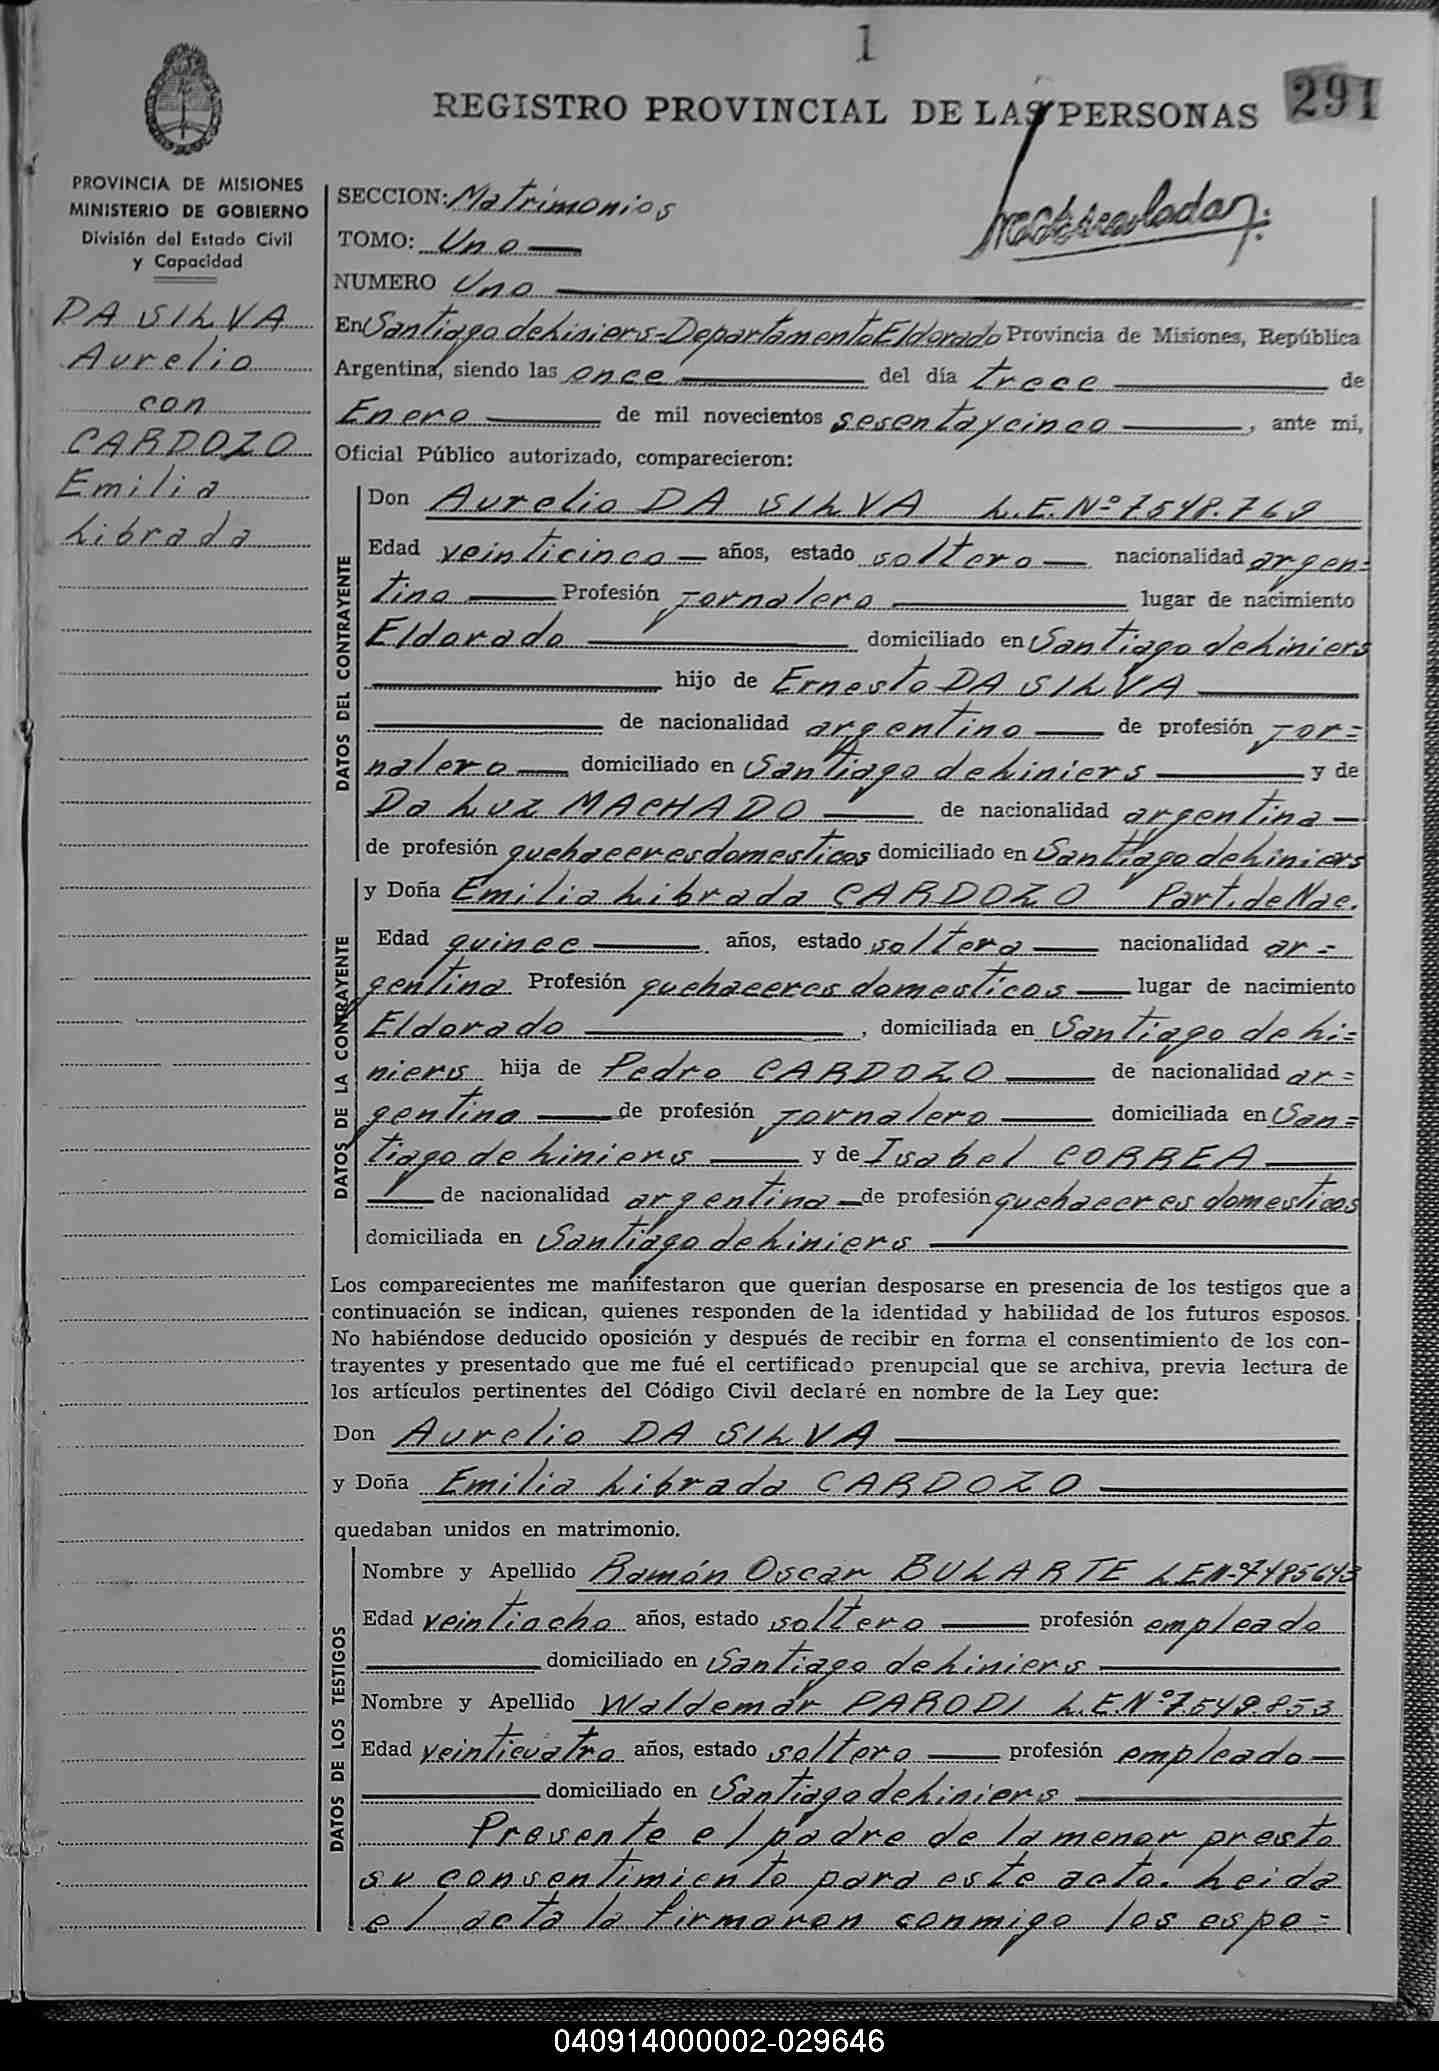 1
291
REGISTRO PROVINCIAL DE LAS PERSONAS
PROVINCIA DE MISIONES
MINISTERIO DE GOBIERNO
División del Estado Civil
y Capacidad
DA SILVA
Aurelio
con
CARDOZO
Emilia
Librada
SECCION: Matrimonios
TOMO: Uno
NUMERO Uno
En Santiago de Liniers-Departamento Eldorado Provincia de Misiones, República
Argentina, siendo las once del día trece de
Enero de mil novecientos sesenta y cinco, ante mi,
Oficial Público autorizado, comparecieron:
DATOS DEL CONTRAYENTE
Don Aurelio DA SILVA L.E.Nº 7.548.769
Edad veinticinco años, estado soltero nacionalidad argen=
tino Profesión jornalero lugar de nacimiento
Eldorado domiciliado en Santiago de Liniers
hijo de Ernesto DA SILVA
de nacionalidad argentino de profesión jor=
nalero domiciliado en Santiago de Liniers y de
Da Luz MACHADO de nacionalidad argentina
de profesión quehaceres domesticos domiciliado en Santiago de Liniers
DATOS DE LA CONTRAYENTE
y Doña Emilia Librada CARDOZO Part. de Nac.
Edad quince años, estado soltera nacionalidad ar=
gentina Profesión quehaceres domesticos lugar de nacimiento
Eldorado, domiciliada en Santiago de Li=
niers hija de Pedro CARDOZO de nacionalidad ar=
gentino de profesión jornalero domiciliada en San=
tiago de Liniers y de Isabel CORREA
de nacionalidad argentina de profesión quehaceres domesticos
domiciliada en Santiago de Liniers
Los comparecientes me manifestaron que querían desposarse en presencia de los testigos que a
continuación se indican, quienes responden de la identidad y habilidad de los futuros esposos.
No habiéndose deducido oposición y después de recibir en forma el consentimiento de los con-
trayentes y presentado que me fué el certificado prenupcial que se archiva, previa lectura de
los artículos pertinentes del Código Civil declaré en nombre de la Ley que:
Don Aurelio DA SILVA
y Doña Emilia Librada CARDOZO
quedaban unidos en matrimonio.
DATOS DE LOS TESTIGOS
Nombre y Apellido Ramón Oscar BULARTE L.E.Nº 7485643
Edad veintiocho años, estado soltero profesión empleado
domiciliado en Santiago de Liniers
Nombre y Apellido Waldemar PARODI L.E.Nº 7.549.853
Edad veinticuatro años, estado soltero profesión empleado
domiciliado en Santiago de Liniers
Presente el padre de la menor presta
su consentimiento para este acto. Leida
el acta la firmaron conmigo los espo=
040914000002-029646